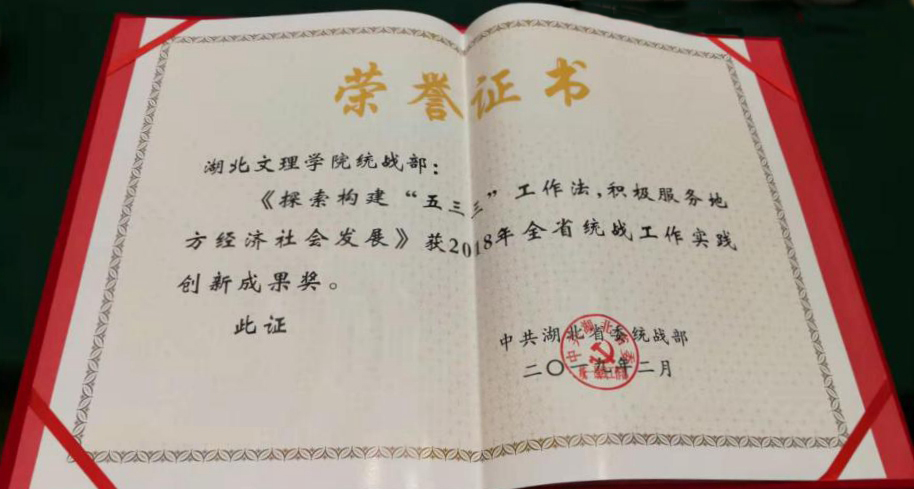 荣誉证书
湖北文理学院统战部：
《探索构建“五三三”工作法，积极服务地
方经济社会发展》获2018年全省统战工作实践
创新成果奖。
此证
中共湖北省委统战部
二〇一九年二月